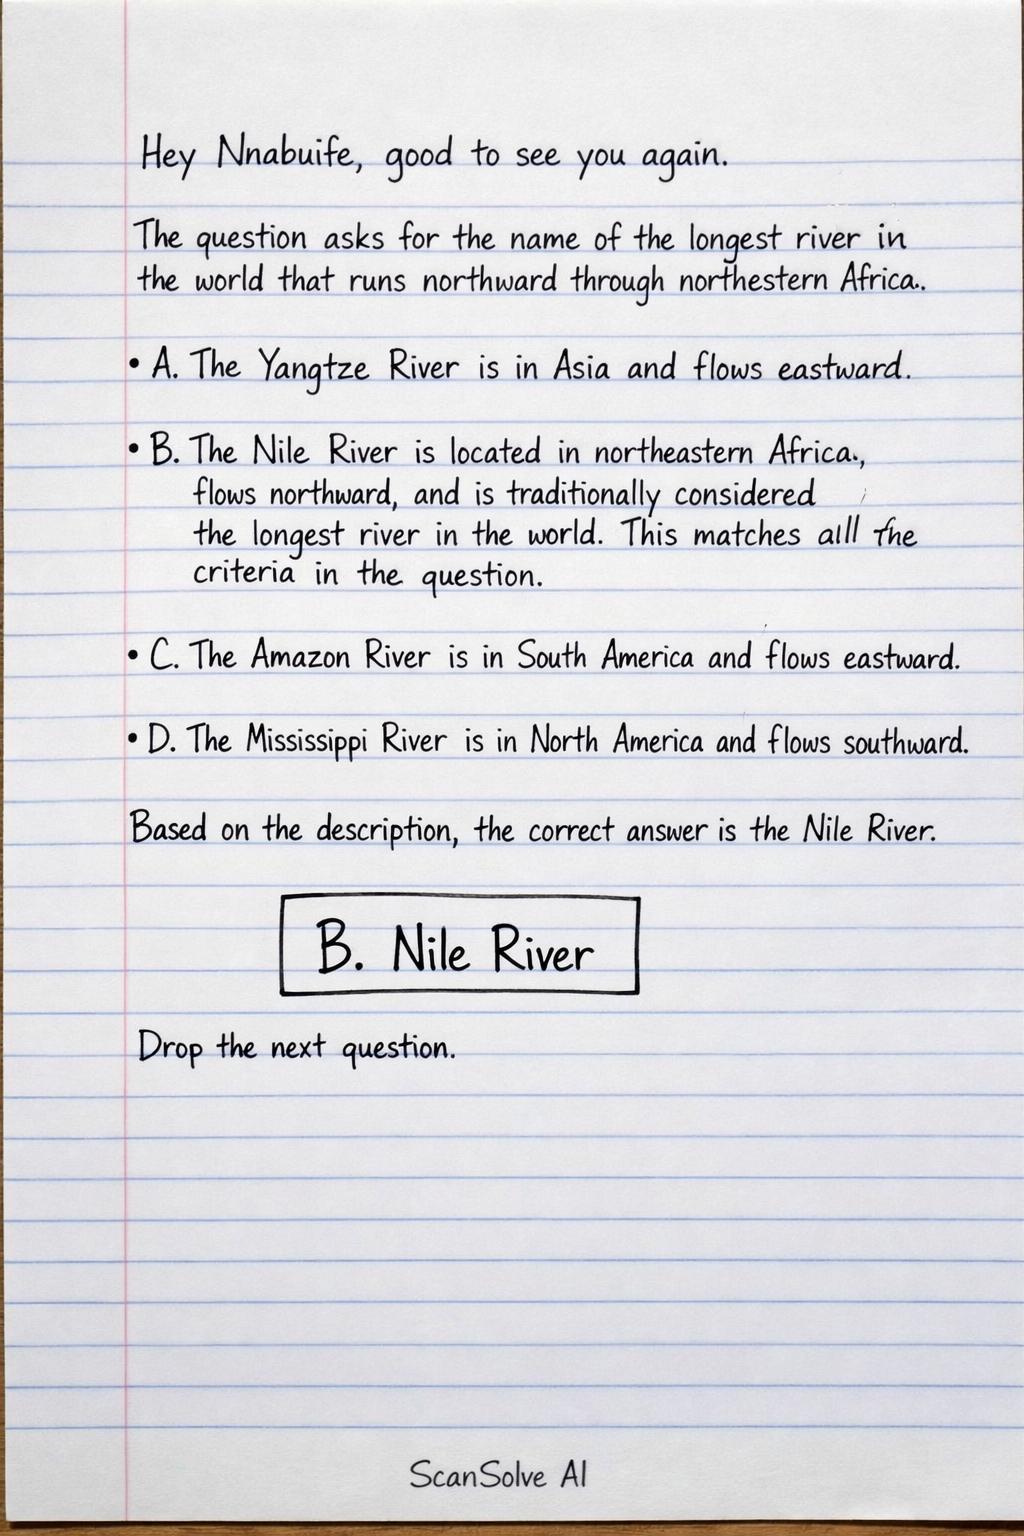 Hey Nnabuife, good to see you again.
The question asks for the name of the longest river in
the world that runs northward through northestern Africa..
• A. The Yangtze River is in Asia and flows eastward.
• B. The Nile River is located in northeastern Africa.,
flows northward, and is traditionally considered
the longest river in the world. This matches all the
criteria in the question.
• C. The Amazon River is in South America and flows eastward.
• D. The Mississippi River is in North America and flows southward.
Based on the description, the correct answer is the Nile River.
B. Nile River
Drop the next question.
ScanSolve AI